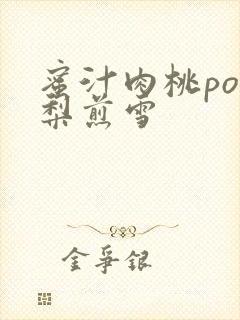 蜜汁肉桃po
梨煎雪
金爭銀